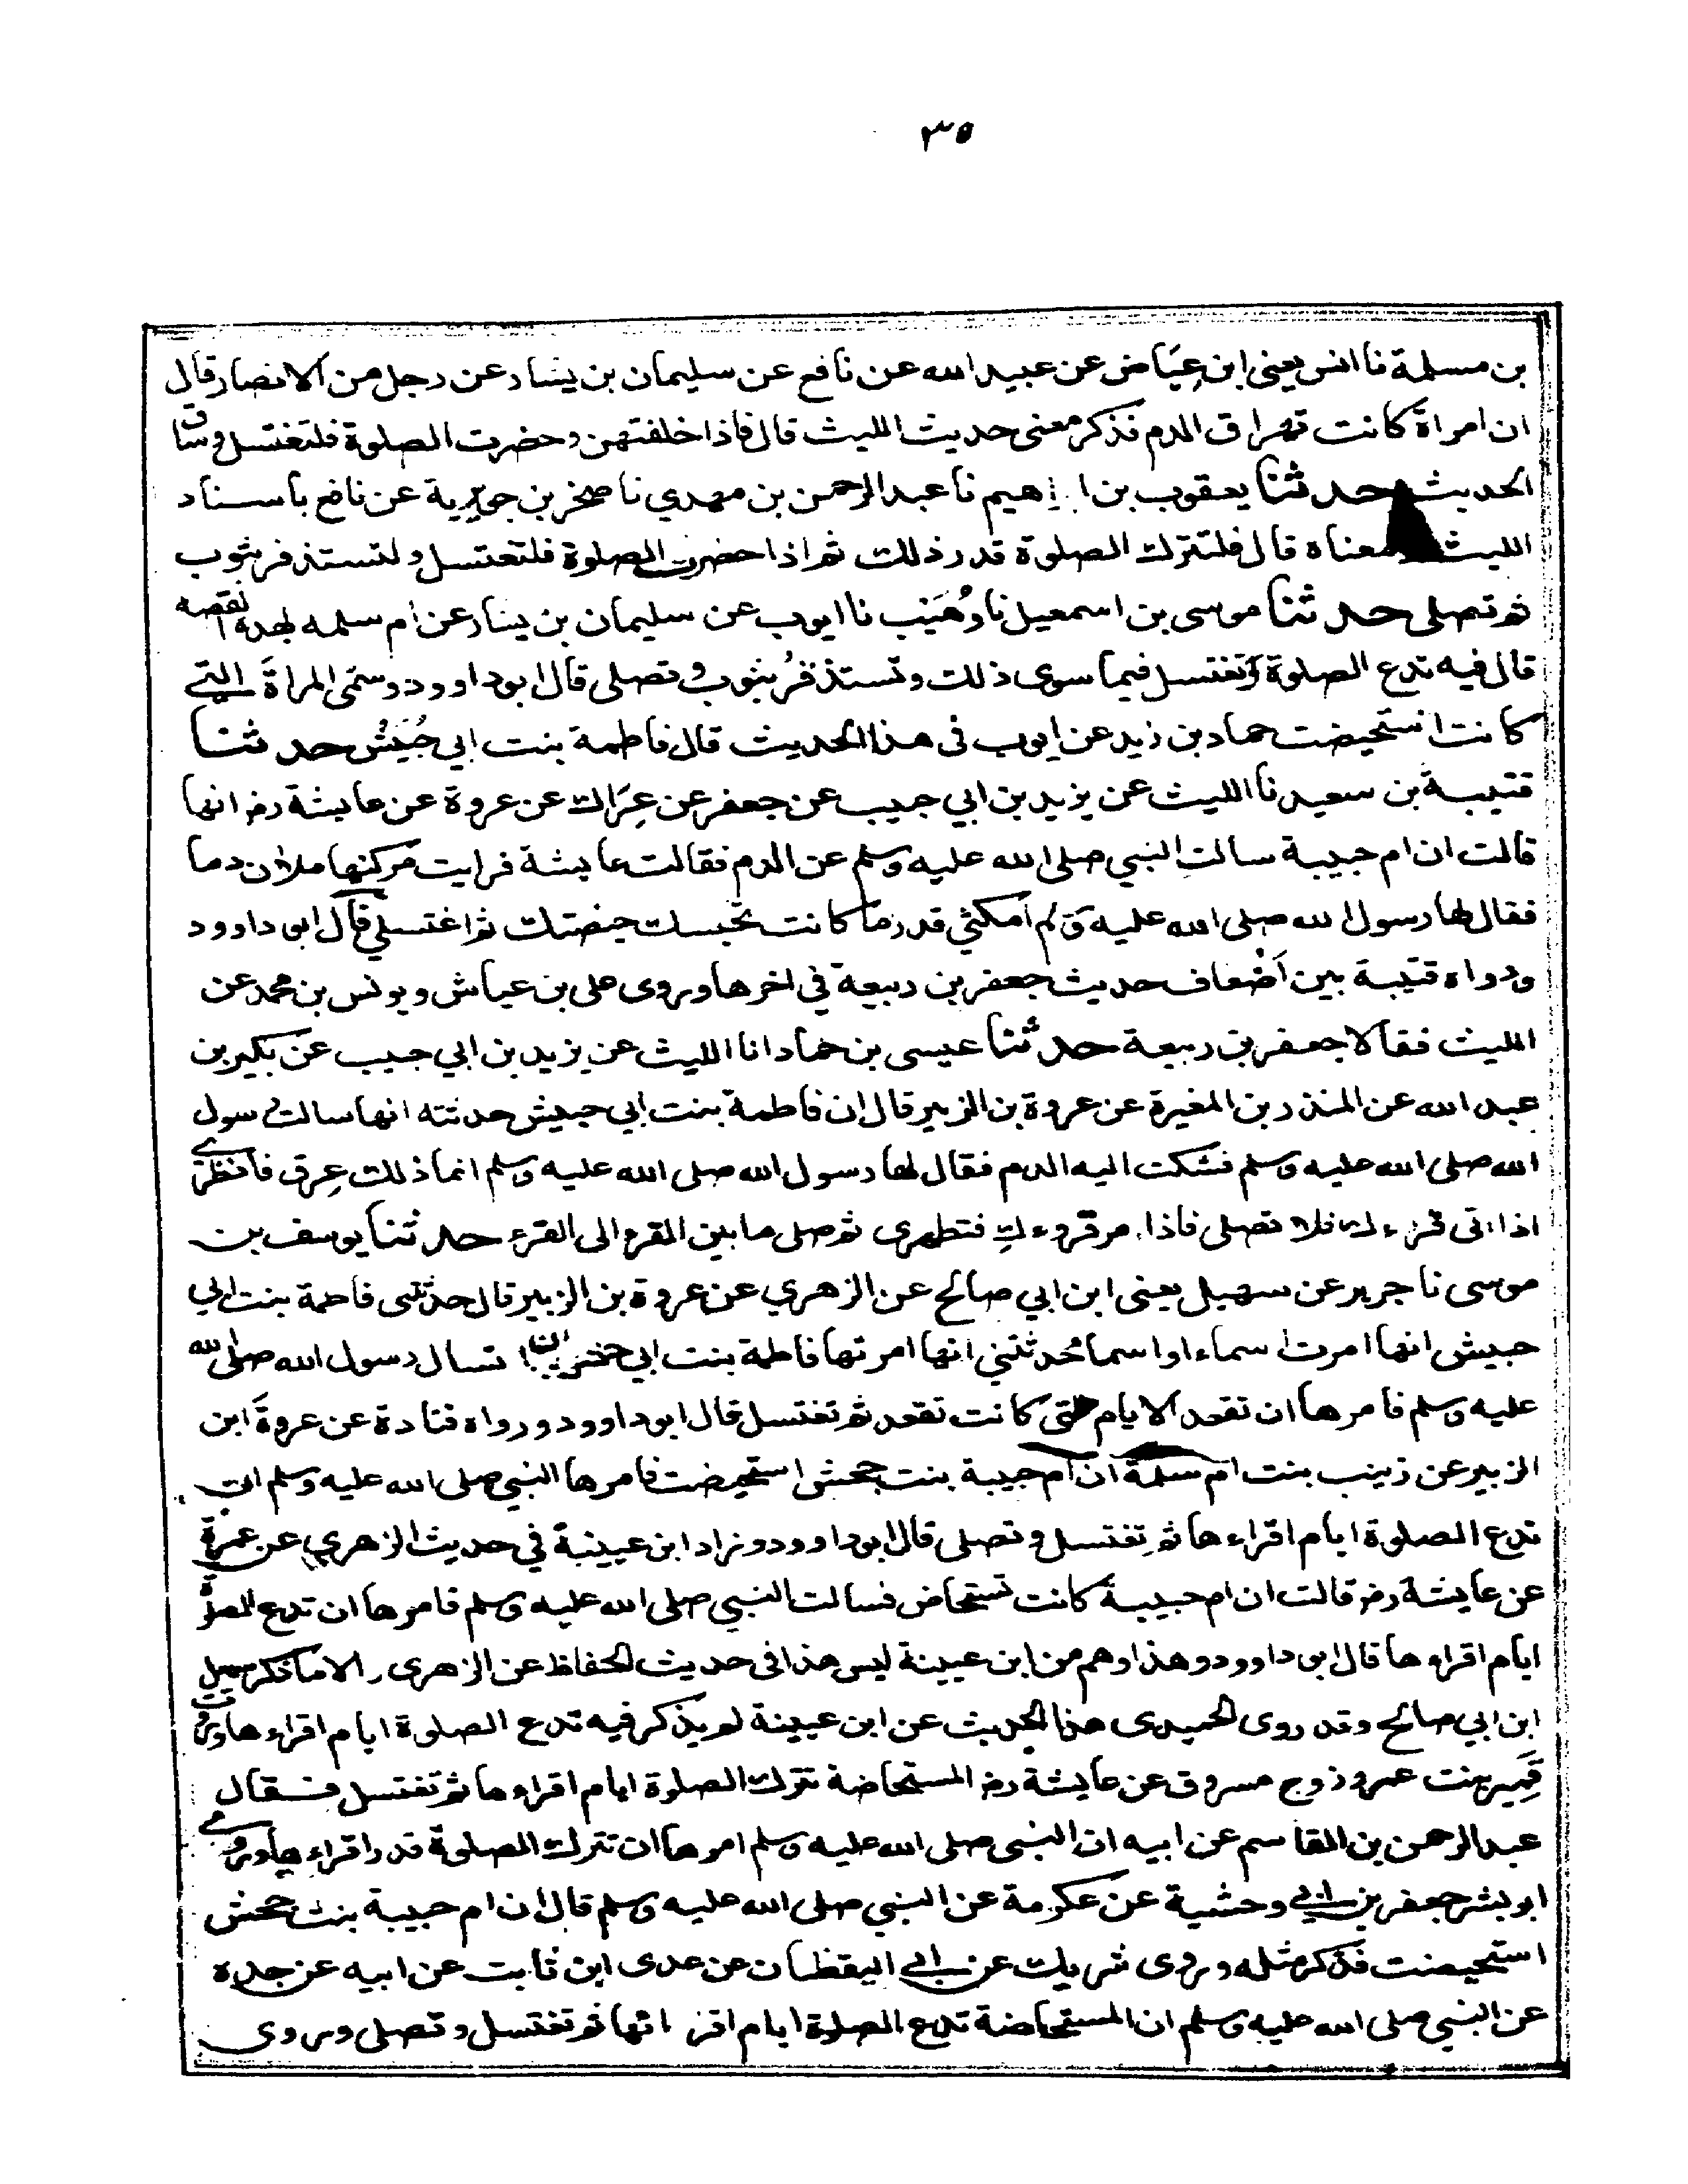 ٣٥
بن مسلمة نا انس يعنى ابن عِيَاض عن عبيد الله عن نافع عن سليمان بن يسار عن رجل من الانصار قال
ان امراة كانت تهراق الدم فذكر معنى حديث الليث قال فاذا خلفتهن وحضرت الصلوة فلتغتسل وساق
الحديث حدثنا يعقوب بن ابراهيم نا عبد الرحمن بن مهدي نا صخر بن جويرية عن نافع باسناد
الليث ومعناه قال فلتترك الصلوة قدر ذلك ثم اذا حضرت الصلوة فلتغتسل ولتستذفر بثوب
ثم تصلى حدثنا موسى بن اسمعيل نا وُهَيْب نا ايوب عن سليمان بن يسار عن ام سلمه بهذه القصه
قال فيه تدع الصلوة وَتغتسل فيما سوى ذلك وتستذفرُ بثوب وتصلى قال ابو داوود وسمى المراةَ التي
كانت استحيضت حماد بن زيد عن ايوب فى هذا الحديث قال فاطمة بنت ابي حُبَيْش حدثنا
قتيبة بن سعيد نا الليث عن يزيد بن ابي حبيب عن جعفر عن عِرَاك عن عروة عن عايشة رضـ انها
قالت ان ام حبيبة سالت النبي صلى الله عليه وسلم عن الدم فقالت عايشة فرايت مركنها ملان دما
فقال لها رسول الله صلى الله عليه وسلم امكثي قدر ما كانت تحبسك حيضتك ثم اغتسلي قال ابو داوود
ورواه قتيبة بين اَضْعاف حديث جعفر بن ربيعة في اخرها وروى على بن عياش ويونس بن محمد عن
الليث فقالا جعفر بن ربيعة حدثنا عيسى بن حماد انا الليث عن يزيد بن ابي حبيب عن بكير بن
عبد الله عن المنذر بن المغيرة عن عروة بن الزبير قال ان فاطمة بنت ابي حبيش حدثته انها سالت رسول
الله صلى الله عليه وسلم فشكت اليه الدم فقال لها رسول الله صلى الله عليه وسلم انما ذلك عِرق فانظرى
اذا اتى قرءك فلا تصلى فاذا مر قروءكِ فتطهرى ثم صلى ما بين القرء الى القرء حدثنا يوسف بن
موسى نا جرير عن سهيل يعنى ابن ابي صالح عن الزهري عن عروة بن الزبير قال حدثتنى فاطمة بنت ابي
حبيش انها امرت اسماء او اسما حُدثتني انها امرتها فاطمة بنت ابي حبيش ان تسال رسول الله صلى الله
عليه وسلم فامرها ان تقعد الايام التى كانت تقعد ثم تغتسل قال ابو داوود ورواه قتادة عن عروةَ ابن
الزبير عن زينب بنت ام سلمة ان ام حبيبة بنت جحش استحيضت فامرها النبي صلى الله عليه وسلم ان
تدع الصلوة ايام اقراءها ثم تغتسل وتصلى قال ابو داوود وزاد ابن عيينة في حديث الزهري عن عمرة
عن عايشة رضـ قالت ان ام حبيبة كانت تستحاض فسالت النبي صلى الله عليه وسلم فامرها ان تدع الصلوة
ايام اقراءها قال ابو داوود وهذا وهم من ابن عيينة ليس هذا فى حديث الحفاظ عن الزهرى الا ما ذكر سهيل
ابن ابي صالح وقد روى الحميدى هذا الحديث عن ابن عيينة لم يذكر فيه تدع الصلوة ايام اقراءها وروت
قَمِير بنت عمرو زوج مسروق عن عايشة رضـ المستحاضة تترك الصلوة ايام اقراءها ثم تغتسل فقال
عبد الرحمن بن القاسم عن ابيه ان النبى صلى الله عليه وسلم امرها ان تترك الصلوة قدر اقراءها وروى
ابو بشر جعفر بن ابي وحشية عن عكرمة عن النبي صلى الله عليه وسلم قال ان ام حبيبة بنت جحش
استحيضت فذكر مثله وروى شريك عن ابي اليقظان عن عدى ابن ثابت عن ابيه عن جده
عن النبي صلى الله عليه وسلم ان المستحاضة تدع الصلوة ايام اقرائها ثم تغتسل وتصلى وروى